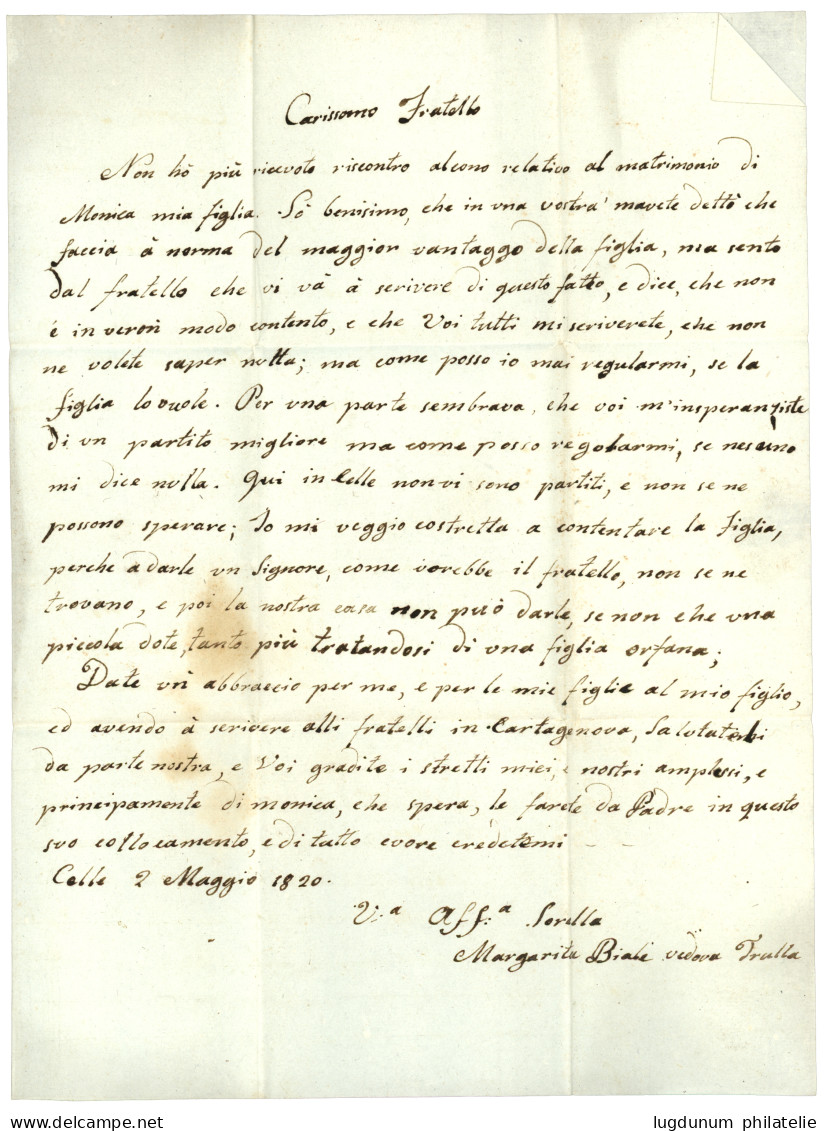 Carissomo Fratello
Non hò più ricevoto riscontro alcono relativo al matrimonio di
Monica mia figlia. Sò benisimo, che in vna vostra mavete detto che
faccia à norma del maggior vantaggo della figlia, ma sento
dal fratello che vi và à scrivere di questo fatto, e dice, che non
é in veron modo contento, e che Voi tutti mi scriverete, che non
ne volete saper nulla; ma come posso io mai regularmi, se la
figlia lo vuole. Per vna parte sembrava, che voi m'insperanziste
di vn partito migliore ma come posso regolarmi, se nessuno
mi dice nulla. Qui in Celle non vi sono partiti, e non se ne
possono sperare; Io mi veggio costretta a contentare la figlia,
perche a darle vn Signore, come vorebbe il fratello, non se ne
trovano, e poi la nostra casa non può darle, se non che vna
piccola dote, tanto più tratandosi di vna figlia orfana;
Date vn abbraccio per me, e per le mie figlie al mio figlio,
ed avendo à scrivere alli fratelli in Cartagenova, Salutateli
da parte nostra, e Voi gradite i stretti miei, e nostri amplessi, e
principamente di monica, che spera, le farete da Padre in questo
svo collocamento, e di tutto cvore credetemi - -
Celle 2 Maggio 1820.
V:ª Aff:ª Sorella
Margarita Biale vedova Trulla
lugdunum philatelie